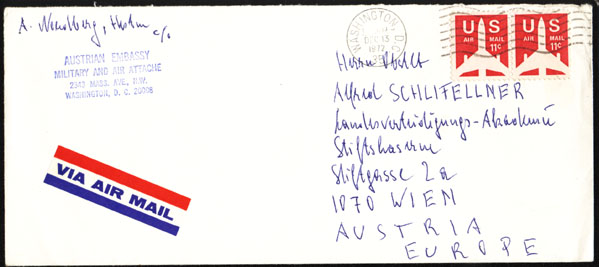 A.
c/o
AUSTRIAN EMBASSY
MILITARY AND AIR ATTACHE
2343 MASS. AVE., N.W.
WASHINGTON, D. C. 20008
WASHINGTON, D.C.
DEC 13
1972
US
AIR MAIL
11c
US
AIR MAIL
11c
Herrn
Alfred SCHLIFELLNER
Landesverteidigungs-Akademie
Stiftskaserne
Stiftgasse 2a
1070 WIEN
AUSTRIA
EUROPE
VIA AIR MAIL